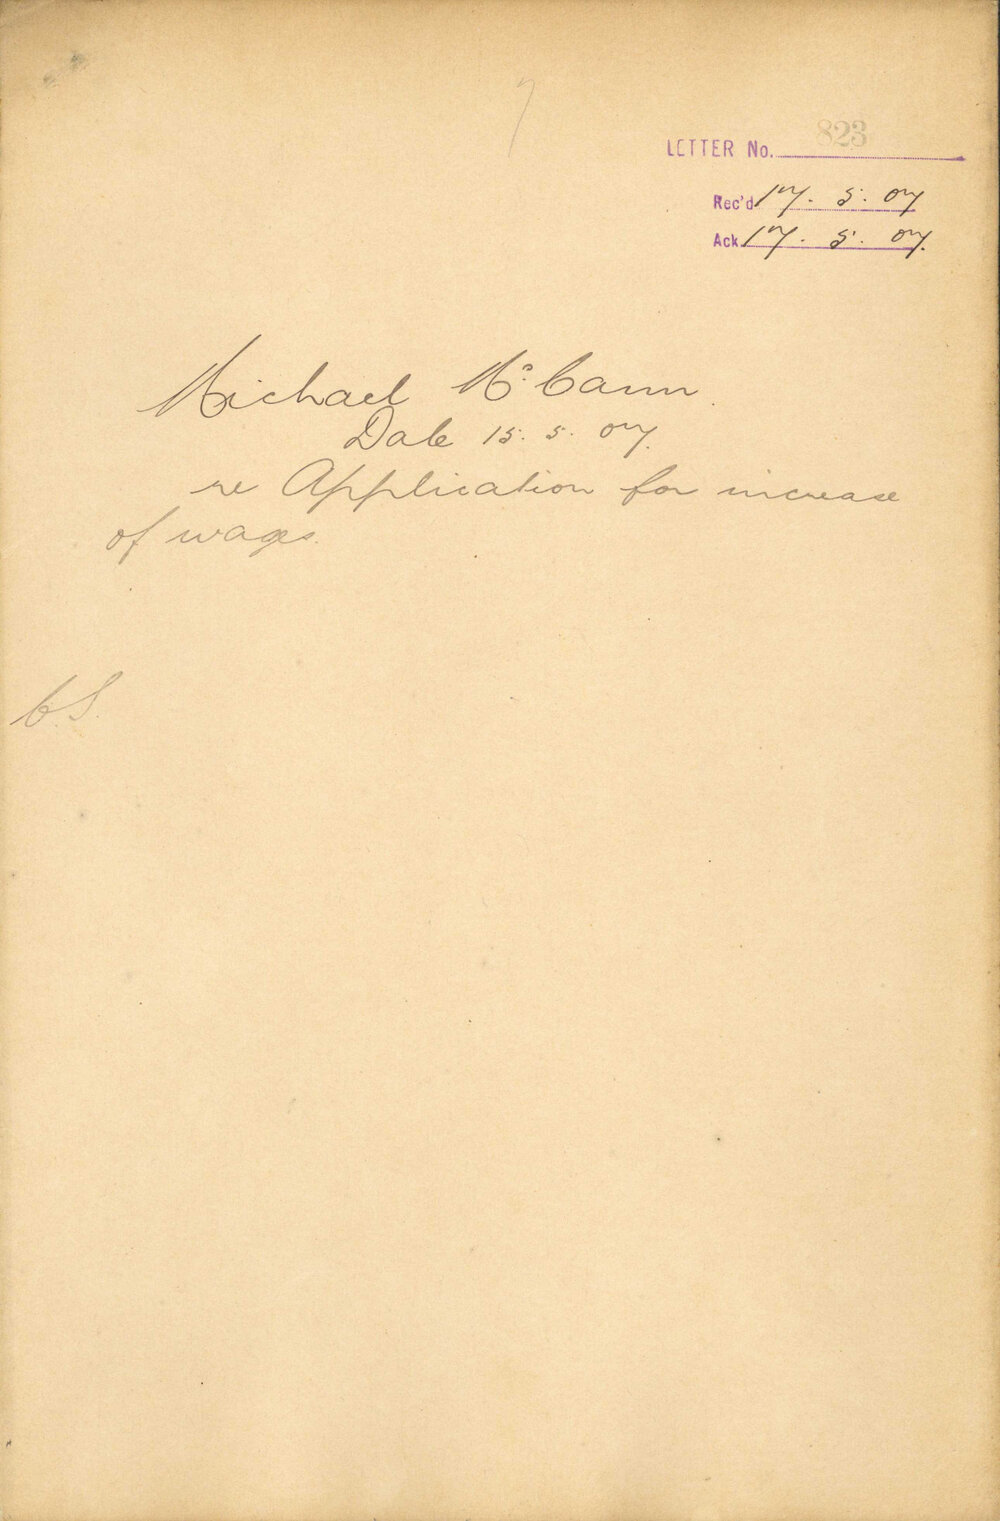 7
LETTER No. 823
Rec'd 17. 5. 07
Ack. 17. 5. 07.
Michael McCann.
Date 15. 5. 07.
re Application for increase
of wages.
C.S.